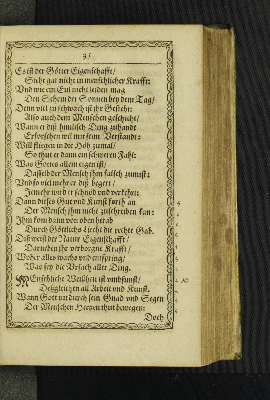 3.
Es ist der Götter Eigenschafft/
Steht gar nicht in menschlicher Krafft:
Und wie ein Eul nicht leiden mag
Den Schein der Sonnen bey dem Tag/
Denn viel zu schwach ist ihr Gesicht:
Also auch dem Menschen geschicht/
Wann er diß himlisch Ding zuhandt
Erforschen wil mit seim Verstandt:
Will fliegen in die Höh zumal/
So thut er dann ein schweren Fahl:
Was Gottes allein eigen ist/
Dasselb der Mensch ihm falsch zumist:
Und so viel mehr er diß begert/
Je mehr wird er schnöd und verkehrt:
Dann dieses Gut und Kunst forth an
Der Mensch ihm nicht zuschreiben kan:
Ihm kom dann vor oben herab
Durch Göttlichs Liecht die rechte Gab.
Diß weiß der Natur Eigenschafft/
Darneben ihr verborgne Krafft/
Woher alles wachs und entspring/
Was sey die Ursach aller Ding.
Menschliche Weißheit ist umbsunst/
Deßgleichen all Arbeit und Kunst.
Wann Gott nit durch sein Gnad und Segen
Der Menschen Hertzen thut bewegen:
Doch